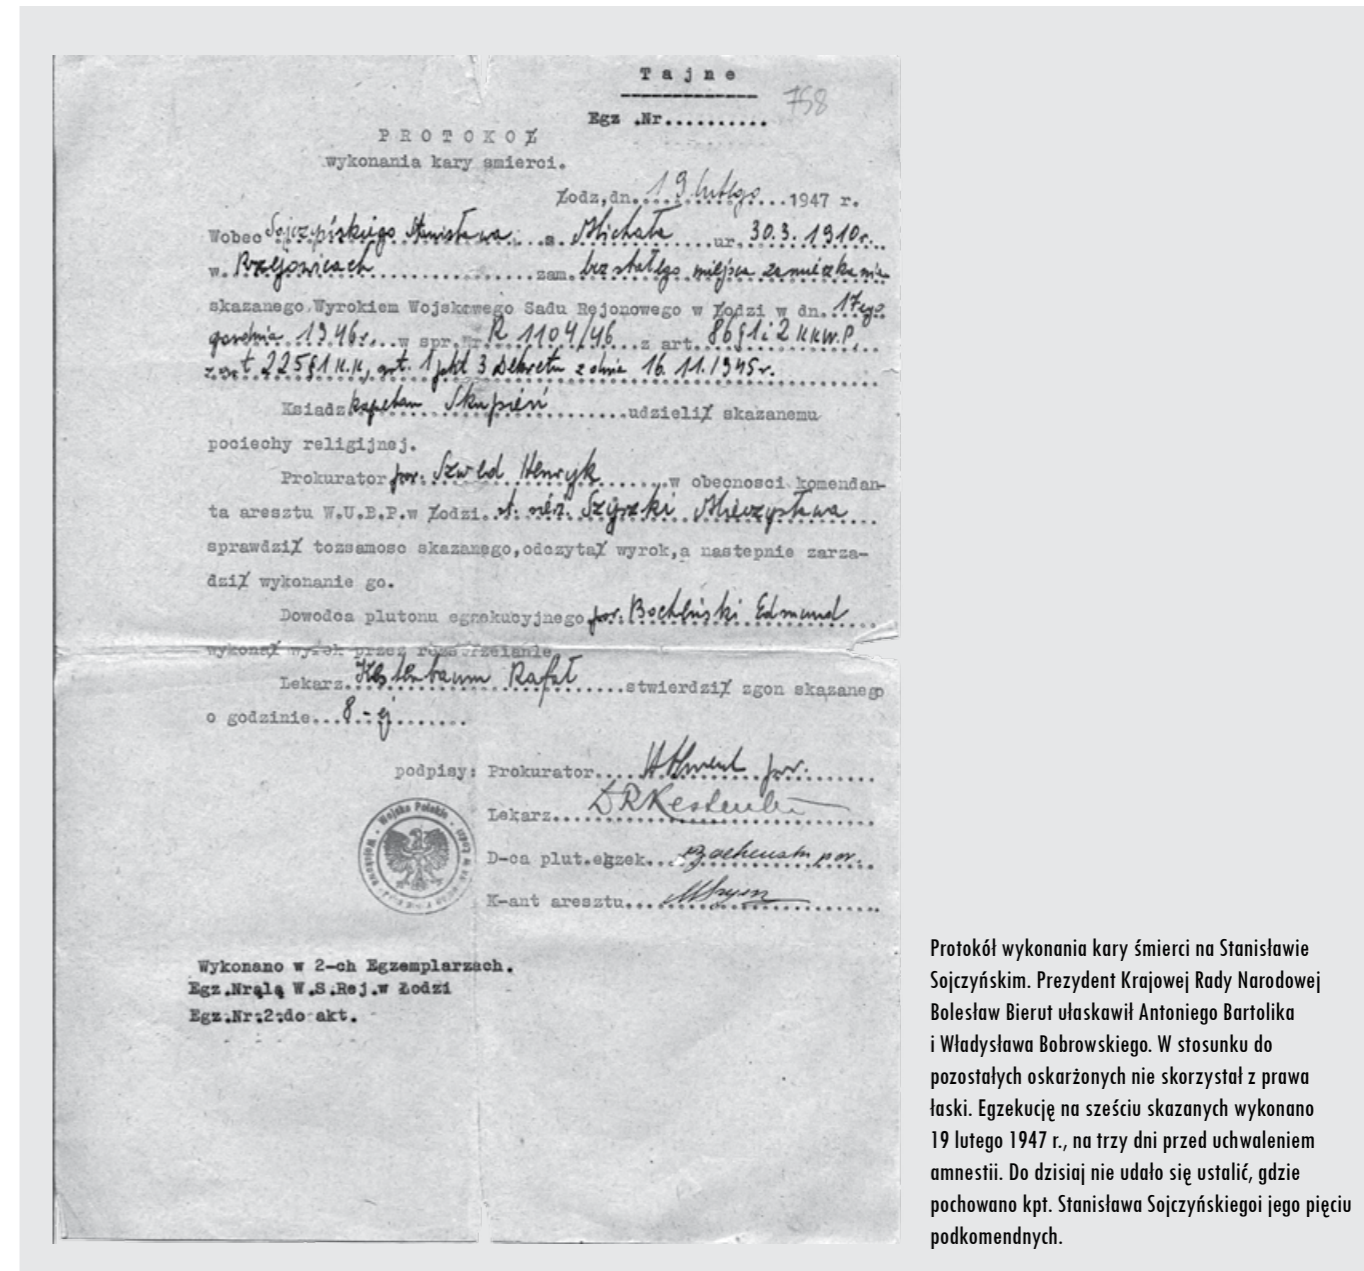 Tajne
758
Egz .Nr..........
PROTOKOŁ
wykonania kary smierci.
Łodz,dn. 19 lutego 1947 r.
Wobec Sojczyńskiego Stanisława s. Michała ur. 30.3.1910r.
w. Rzejowicach zam. bez stałego miejsca zamieszkania
skazanego Wyrokiem Wojskowego Sadu Rejonowego w Łodzi w dn. 17ego
grudnia 1946r. w spr.Nr R 1104/46 z art. 86§1i2 KKW.P.
z art 225§1 K.K, art. 1 pkt 3 Dekretu z dnia 16.11.1945r.
Ksiadz kapelan Skupień udzielił skazanemu
pociechy religijnej.
Prokurator por. Szwed Henryk w obecnosci komendan-
ta aresztu W.U.B.P.w Łodzi. st. sierż. Mieczysława
sprawdził tozsamosc skazanego,odczytał wyrok,a nastepnie zarza-
dził wykonanie go.
Dowodca plutonu egzekucyjnego por. Bocheński Edmund
wykonał wyrok przez rozstrzelanie
Lekarz Kestenbaum Rafał stwierdził zgon skazanego
o godzinie 8-ej
podpisy: Prokurator por.
Lekarz DR Kestenb
D-ca plut.egzek. por.
K-ant aresztu
Wojsko Polskie
Wykonano w 2-ch Egzemplarzach.
W.S.Rej.w Łodzi
Egz.Nr.2.do akt.
Protokół wykonania kary śmierci na Stanisławie
Sojczyńskim. Prezydent Krajowej Rady Narodowej
Bolesław Bierut ułaskawił Antoniego Bartolika
i Władysława Bobrowskiego. W stosunku do
pozostałych oskarżonych nie skorzystał z prawa
łaski. Egzekucję na sześciu skazanych wykonano
19 lutego 1947 r., na trzy dni przed uchwaleniem
amnestii. Do dzisiaj nie udało się ustalić, gdzie
pochowano kpt. Stanisława Sojczyńskiegoi jego pięciu
podkomendnych.